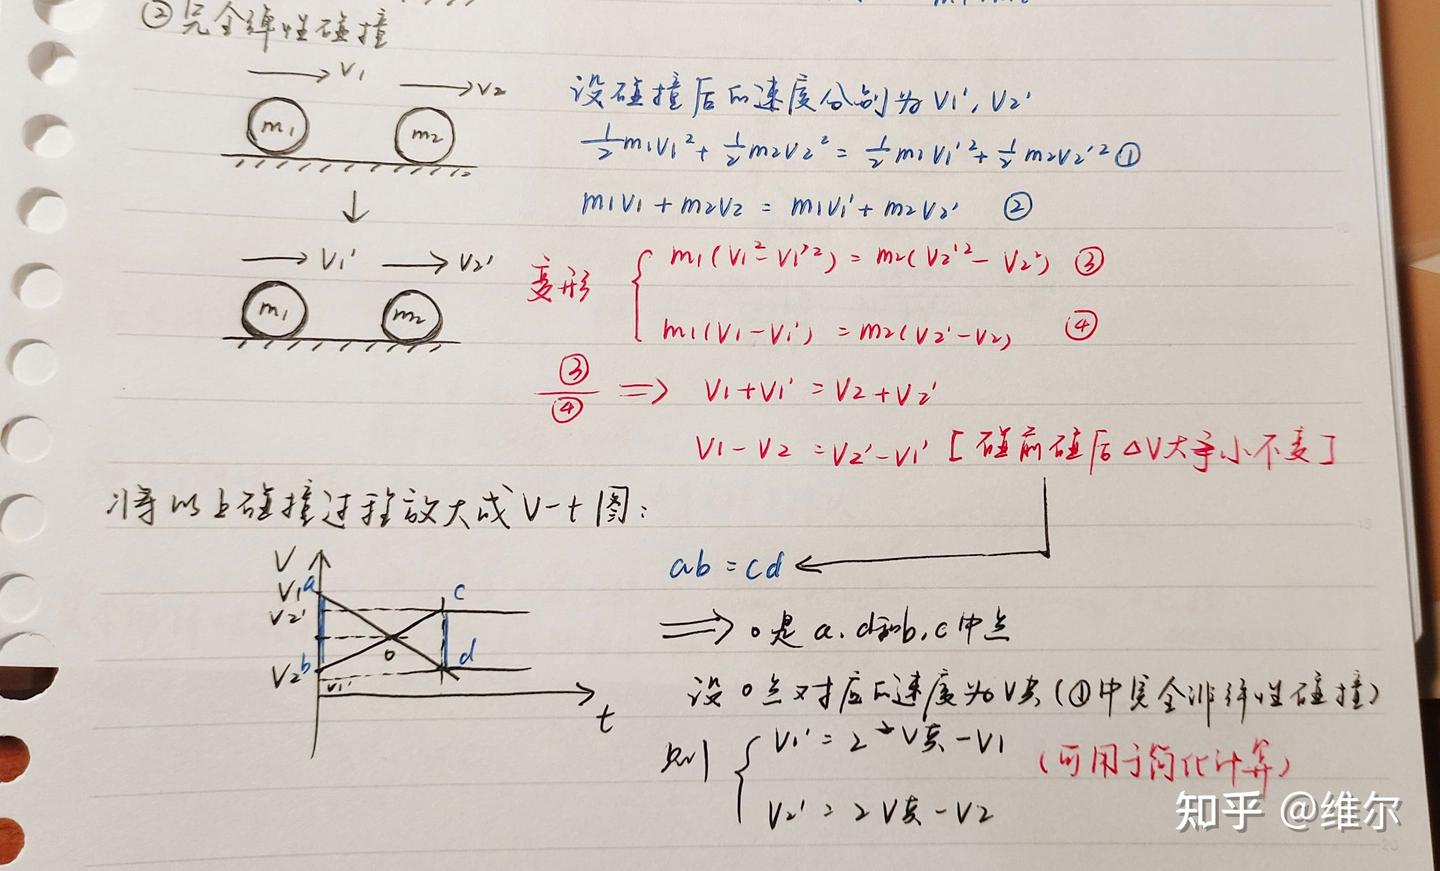 ②完全弹性碰撞
V1 V2
m1 m2
V1' V2'
m1 m2
设碰撞后的速度分别为V1', V2'
½m1V1²+½m2V2²=½m1V1'²+½m2V2'² ①
m1V1+m2V2=m1V1'+m2V2' ②
变形 { m1(V1²-V1'²)=m2(V2'²-V2²) ③
m1(V1-V1')=m2(V2'-V2) ④
③/④ ⇒ V1+V1'=V2+V2'
V1-V2=V2'-V1' [碰前碰后ΔV大小不变]
将以上碰撞过程放大成V-t图:
V
V1 a c
V2'
o
V2 b d
V1'
t
ab=cd
⇒ o是a、d和b、c中点
设o点对应的速度为V共(①中完全非弹性碰撞)
则 { V1'=2V共-V1 (可用于简化计算)
V2'=2V共-V2
知乎 @维尔